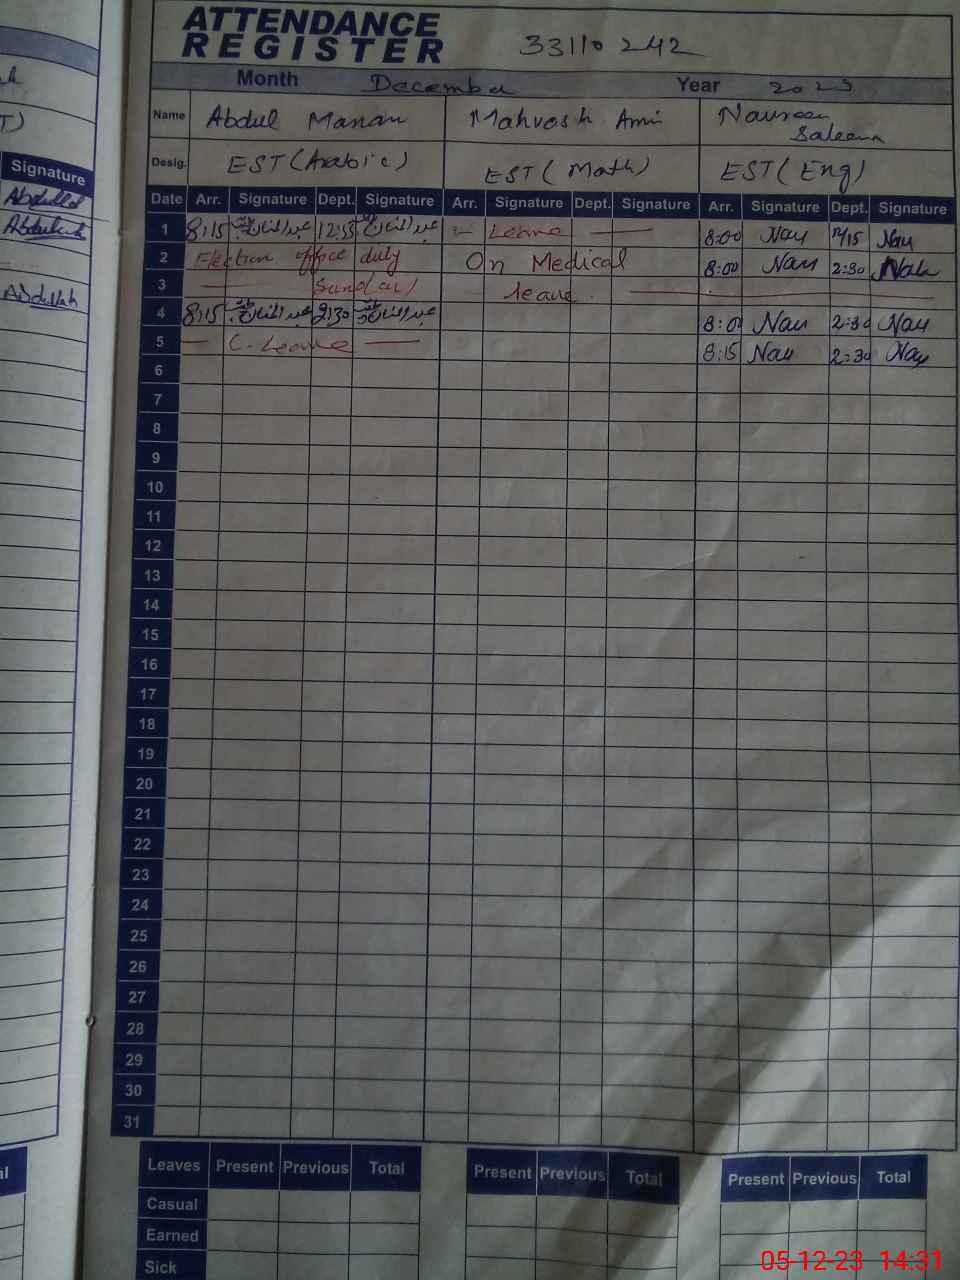 ATTENDANCE
REGISTER 33110242
Month December Year 2023
Name Abdul Manan Mahvosh Amin Naureen Saleem
Desig. EST (Arabic) EST (Math) EST (Eng)
Signature
Date Arr. Signature Dept. Signature Arr. Signature Dept. Signature Arr. Signature Dept. Signature
1 8:15 عبدالمنان 12:35 عبدالمنان Leave 8:00 Nau Nau
2 Election office duty On Medical 8:00 Nau 2:30 Nau
3 Sunday leave
4 8:15 عبدالمنان 2:30 عبدالمنان 8:00 Nau 2:30 Nau
5 C. Leave 8:15 Nau 2:30 Nau
6
7
8
9
10
11
12
13
14
15
16
17
18
19
20
21
22
23
24
25
26
27
28
29
30
31
Leaves Present Previous Total Present Previous Total Present Previous Total
Casual
Earned
Sick
Abdullah
Abdullah
Abdullah
05-12-23 14:31